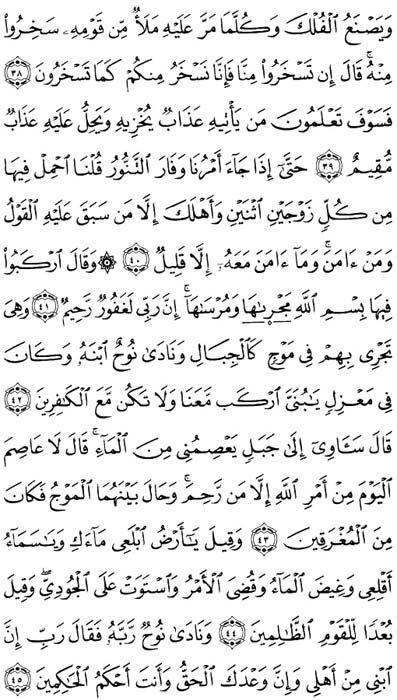 وَيَصْنَعُ ٱلْفُلْكَ وَكُلَّمَا مَرَّ عَلَيْهِ مَلَأٌ مِّن قَوْمِهِۦ سَخِرُوا۟
مِنْهُ ۚ قَالَ إِن تَسْخَرُوا۟ مِنَّا فَإِنَّا نَسْخَرُ مِنكُمْ كَمَا تَسْخَرُونَ ٣٨
فَسَوْفَ تَعْلَمُونَ مَن يَأْتِيهِ عَذَابٌ يُخْزِيهِ وَيَحِلُّ عَلَيْهِ عَذَابٌ
مُّقِيمٌ ٣٩ حَتَّىٰٓ إِذَا جَآءَ أَمْرُنَا وَفَارَ ٱلتَّنُّورُ قُلْنَا ٱحْمِلْ فِيهَا
مِن كُلٍّ زَوْجَيْنِ ٱثْنَيْنِ وَأَهْلَكَ إِلَّا مَن سَبَقَ عَلَيْهِ ٱلْقَوْلُ
وَمَنْ ءَامَنَ ۚ وَمَآ ءَامَنَ مَعَهُۥٓ إِلَّا قَلِيلٌ ٤٠ ۞ وَقَالَ ٱرْكَبُوا۟
فِيهَا بِسْمِ ٱللَّهِ مَجْر۪ىٰهَا وَمُرْسَىٰهَآ ۚ إِنَّ رَبِّى لَغَفُورٌ رَّحِيمٌ ٤١ وَهِىَ
تَجْرِى بِهِمْ فِى مَوْجٍ كَٱلْجِبَالِ وَنَادَىٰ نُوحٌ ٱبْنَهُۥ وَكَانَ
فِى مَعْزِلٍ يَـٰبُنَىَّ ٱرْكَب مَّعَنَا وَلَا تَكُن مَّعَ ٱلْكَـٰفِرِينَ ٤٢
قَالَ سَـَٔاوِىٓ إِلَىٰ جَبَلٍ يَعْصِمُنِى مِنَ ٱلْمَآءِ ۚ قَالَ لَا عَاصِمَ
ٱلْيَوْمَ مِنْ أَمْرِ ٱللَّهِ إِلَّا مَن رَّحِمَ ۚ وَحَالَ بَيْنَهُمَا ٱلْمَوْجُ فَكَانَ
مِنَ ٱلْمُغْرَقِينَ ٤٣ وَقِيلَ يَـٰٓأَرْضُ ٱبْلَعِى مَآءَكِ وَيَـٰسَمَآءُ
أَقْلِعِى وَغِيضَ ٱلْمَآءُ وَقُضِىَ ٱلْأَمْرُ وَٱسْتَوَتْ عَلَى ٱلْجُودِىِّ ۖ وَقِيلَ
بُعْدًا لِّلْقَوْمِ ٱلظَّـٰلِمِينَ ٤٤ وَنَادَىٰ نُوحٌ رَّبَّهُۥ فَقَالَ رَبِّ إِنَّ
ٱبْنِى مِنْ أَهْلِى وَإِنَّ وَعْدَكَ ٱلْحَقُّ وَأَنتَ أَحْكَمُ ٱلْحَـٰكِمِينَ ٤٥